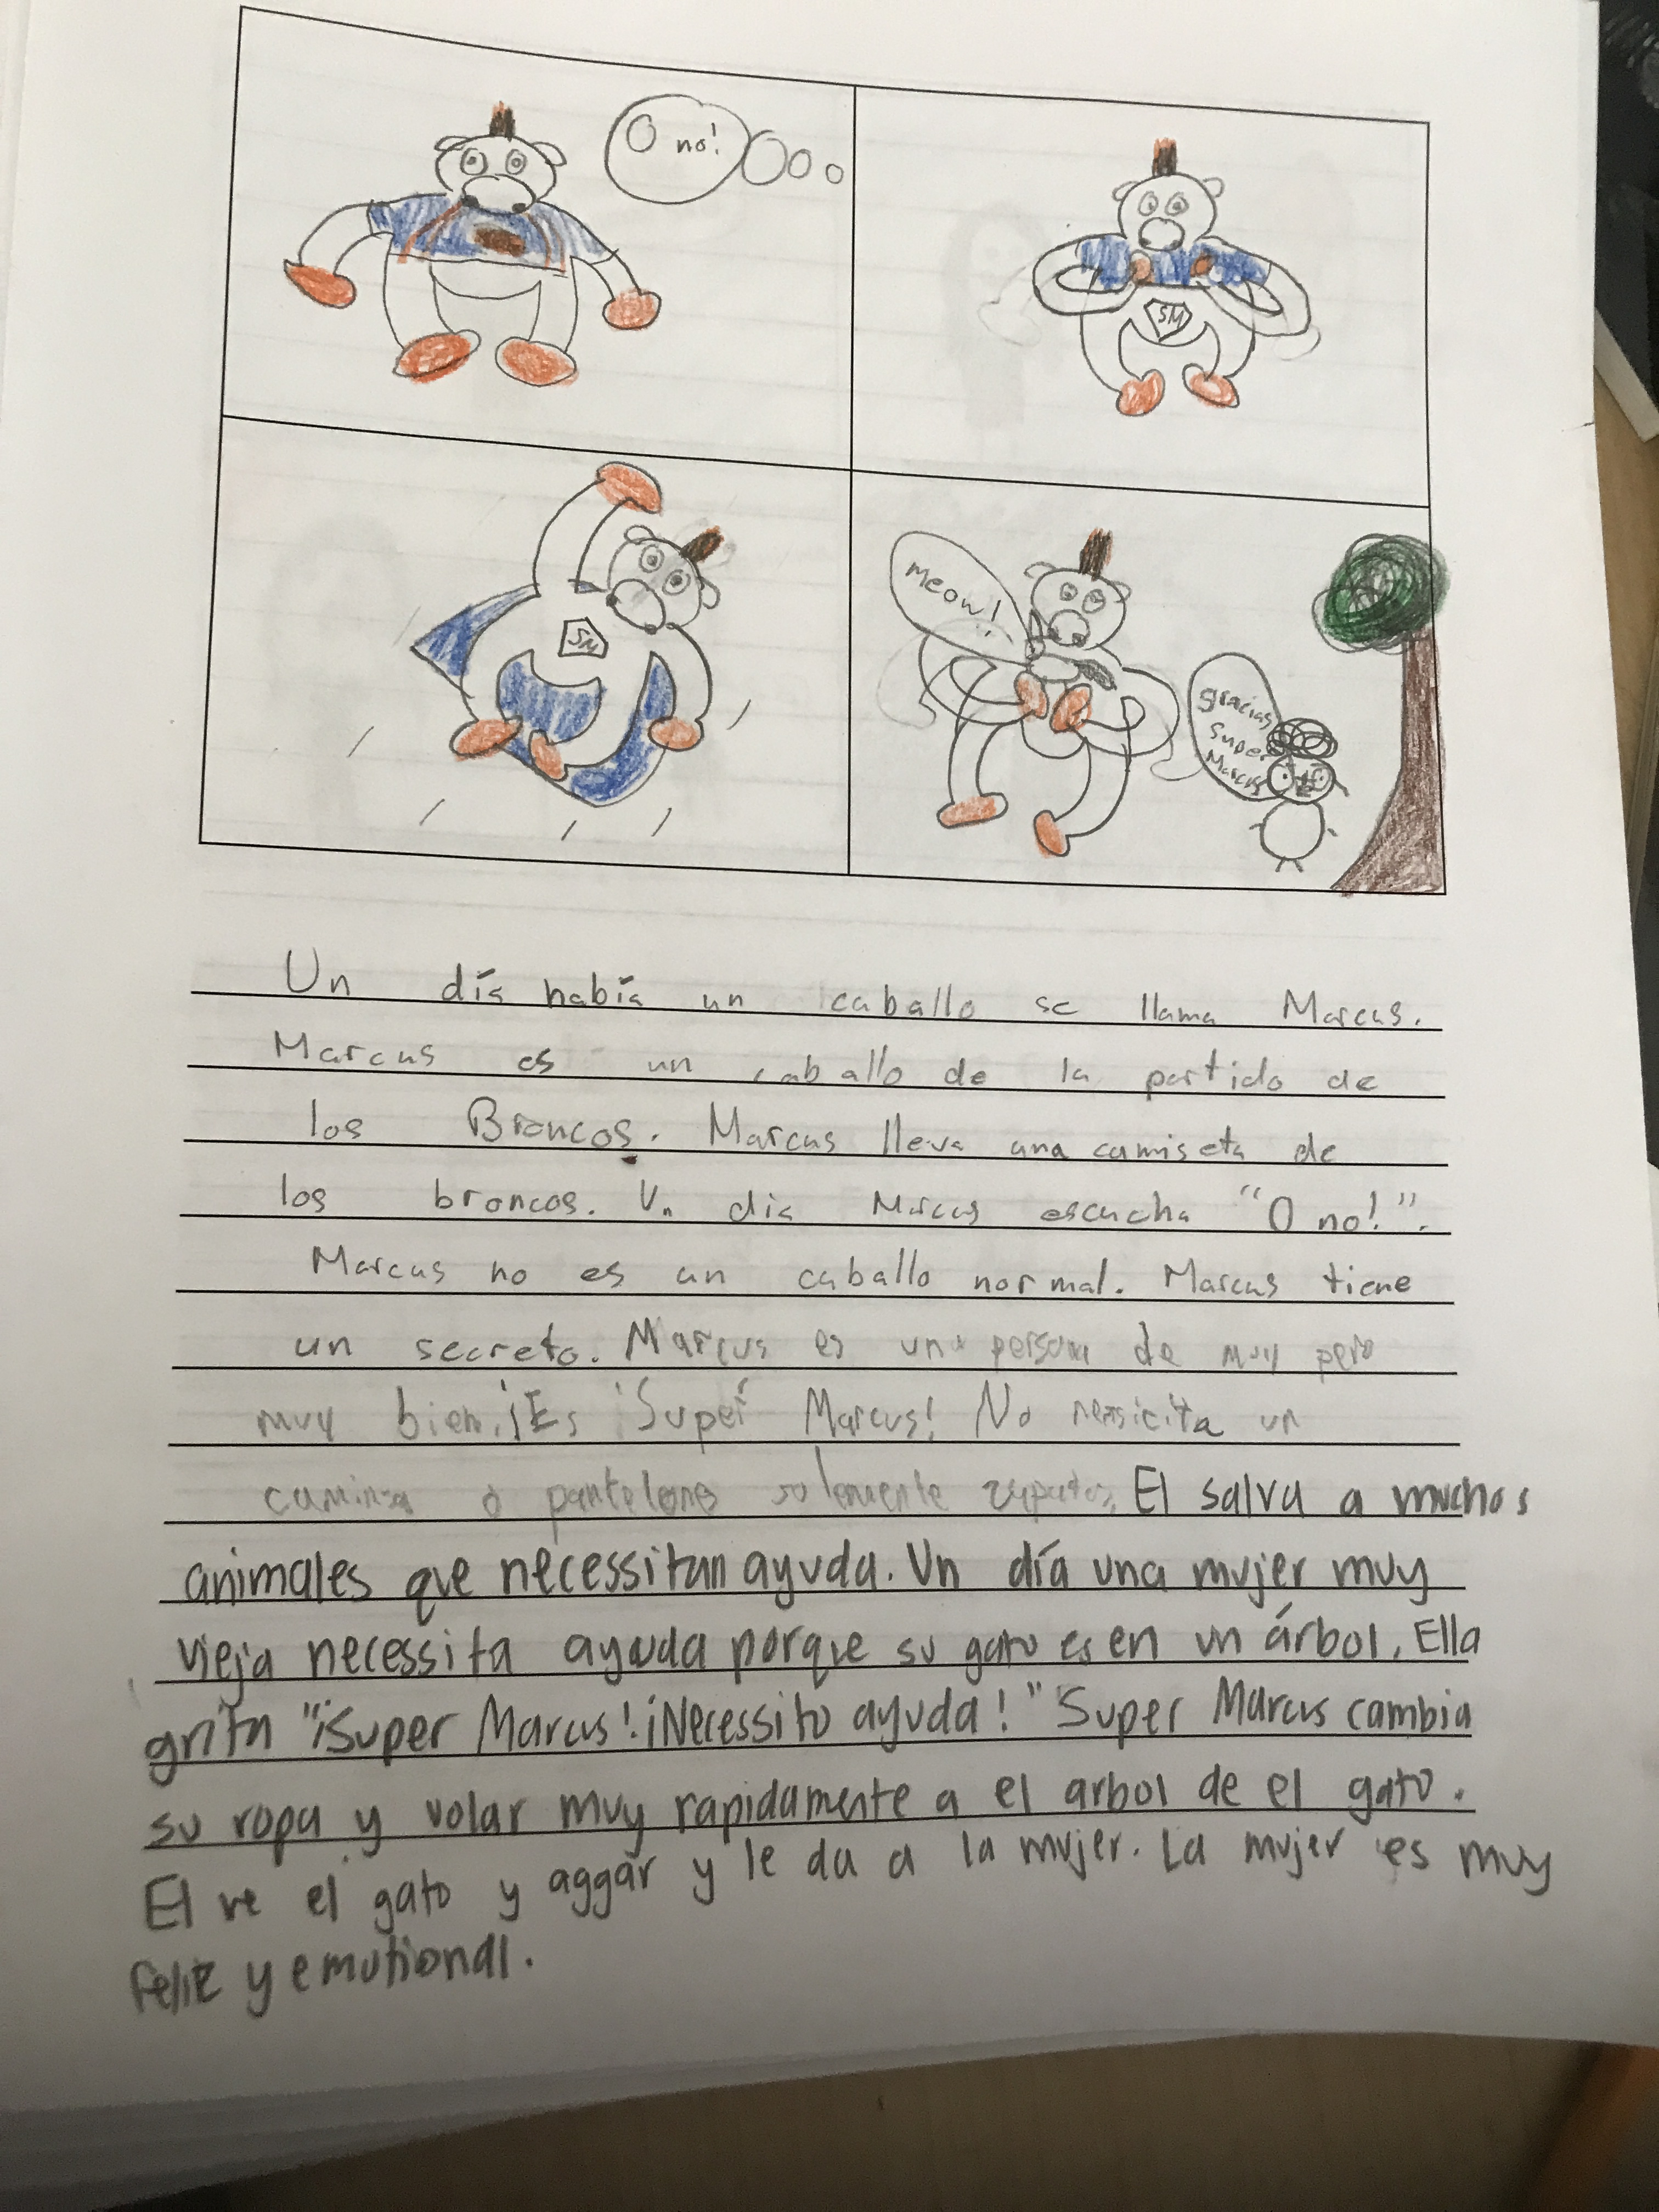 O no!
SM
SM
meow!
gracias
super
Marcus
Un día había un caballo se llama Marcus.
Marcus es un caballo de la partido de
los Broncos. Marcus lleva una camiseta de
los broncos. Un dia Marcus escucha "O no!".
Marcus no es un caballo normal. Marcus tiene
un secreto. Marcus es una persona de muy pero
muy bien. ¡Es Super Marcus! No un
o solemente zapatos. El salva a muchos
animales que necessitan ayuda. Un día una mujer muy
vieja necessita ayuda porque su gato es en un árbol. Ella
grita "¡Super Marcus! ¡Necessito ayuda!" Super Marcus cambia
su ropa y volar muy rapidamente a el arbol de el gato.
El ve el gato y aggar y le da a la mujer. La mujer es muy
feliz y emotional.